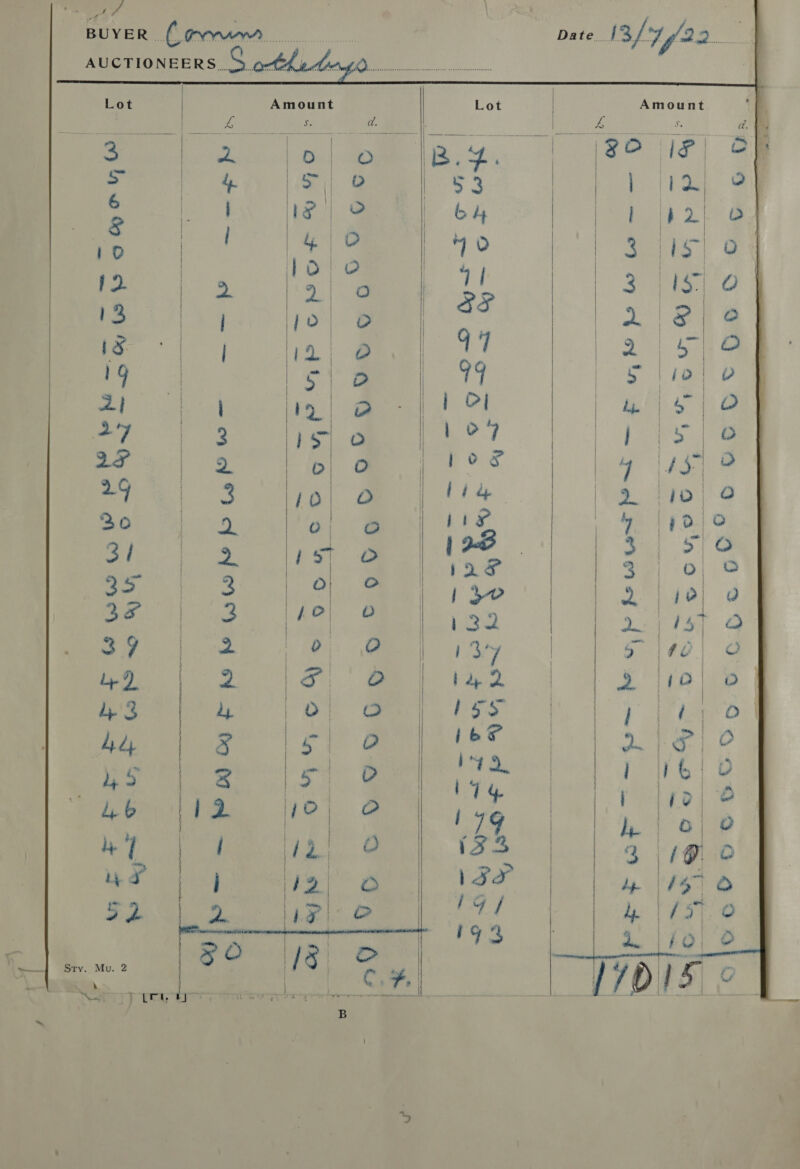 BUYER
Date 13/7/22
AUCTIONEERS Sothebys
Lot Amount Lot Amount
£ s. d. £ s. d.
3 2 0 0 B.F. 80 18 0
5 4 5 0 53 1 12 0
6 1 18 0 64 1 12 0
8 1 4 0 70 3 15 0
10 10 0 71 3 15 0
12 2 2 0 88 2 8 0
13 1 10 0 97 2 5 0
18 1 12 0 99 5 10 0
19 5 0 101 4 5 0
21 1 12 0 107 1 5 0
27 3 15 0 108 7 15 0
28 2 0 0 114 2 10 0
29 3 10 0 118 7 10 0
30 2 0 0 3 5 0
31 2 15 0 128 3 0 0
35 3 0 0 130 2 10 0
38 3 10 0 132 2 15 0
39 2 0 0 137 5 10 0
42 2 8 0 142 2 10 0
43 4 0 0 155 1 1 0
44 8 5 0 168 2 8 0
45 8 5 0 172 1 16 0
46 12 10 0 174 1 10 0
47 1 12 0 179 4 0 0
48 1 12 0 183 3 10 0
52 2 18 0 188 4 15 0
191 4 15 0
193 2 10 0
80 18 0
C.F.
170 15 0
Sty. Mu. 2
B